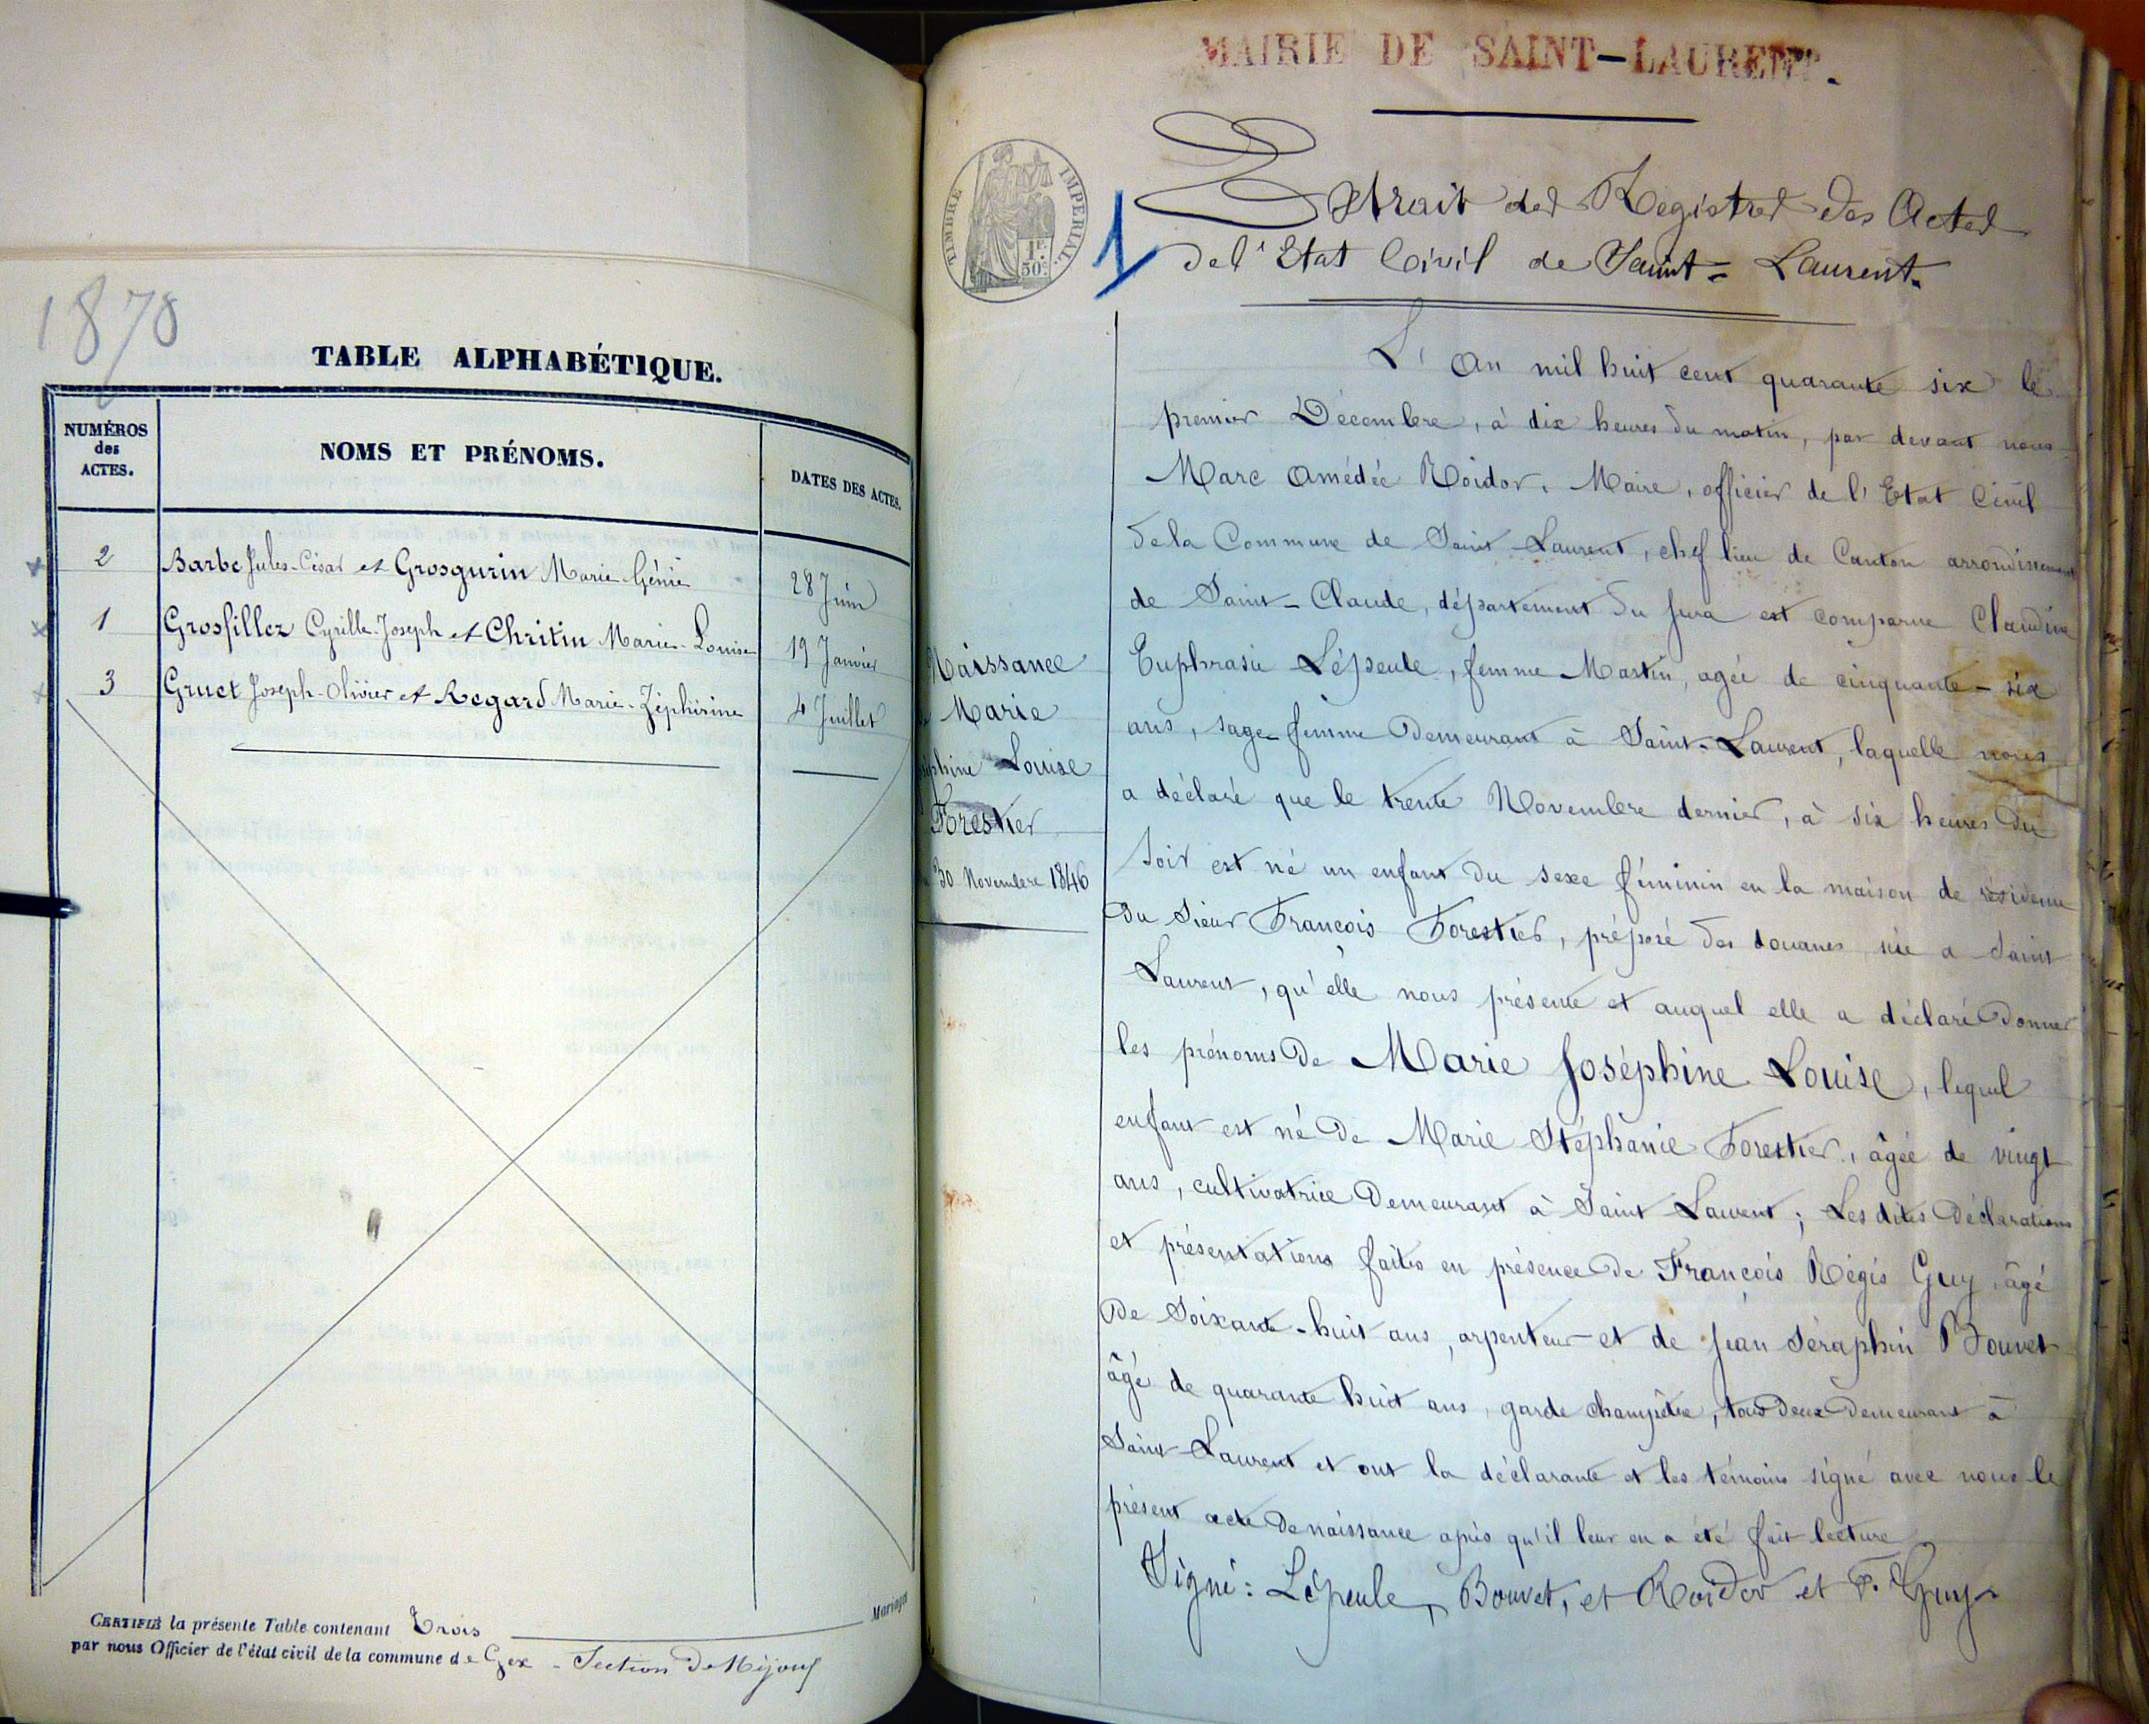 1870
TABLE ALPHABÉTIQUE.
NUMÉROS
des
ACTES.
NOMS ET PRÉNOMS.
DATES DES ACTES.
2 Barbe Jules-César et Grosgurin Marie-Génie 28 Juin
1 Grosfillez Cyrille-Joseph et Chritin Marie-Louise 19 Janvier
3 Gruet Joseph-Olivier et Regard Marie-Zéphirine 4 Juillet
CERTIFIÉ la présente Table contenant Trois Mariages
par nous Officier de l'état civil de la commune de Gex - Section de Mijoux
MAIRIE DE SAINT-LAURENT.
TIMBRE IMPERIAL.
1F.
50C.
1
Extrait des Registres des Actes
de l'Etat Civil de Saint-Laurent.
Naissance
de Marie
Joséphine Louise
Forestier
30 Novembre 1846
L'An mil huit cent quarante six le
premier Décembre, à dix heures du matin, par devant nous
Marc Amédée Roidor, Maire, officier de l'Etat Civil
de la Commune de Saint-Laurent, chef lieu de Canton arrondissement
de Saint-Claude, département du Jura est comparue Claudine
Euphrasie Lépeule, femme Martin, agée de cinquante-six
ans, sage-femme demeurant à Saint-Laurent, laquelle nous
a déclaré que le trente Novembre dernier, à six heures du
soir est né un enfant du sexe féminin en la maison de résidence
du Sieur François Forestier, préposé des douanes, sise a Saint
Laurent, qu'elle nous présente et auquel elle a déclaré donner
les prénoms de Marie Joséphine Louise, lequel
enfant est né de Marie Stéphanie Forestier, âgée de vingt
ans, cultivatrice demeurant à Saint Laurent; Les dites déclarations
et présentations faites en présence de François Régis Guy, âgé
de Soixante-huit ans, arpenteur et de Jean Séraphin Bouvet
âgé de quarante huit ans, garde champêtre, tous deux demeurant à
Saint-Laurent et ont la déclarante et les témoins signé avec nous le
présent acte de naissance après qu'il leur en a été fait lecture
Signé: Lépeule, Bouvet, et Roidor et F. Guy.